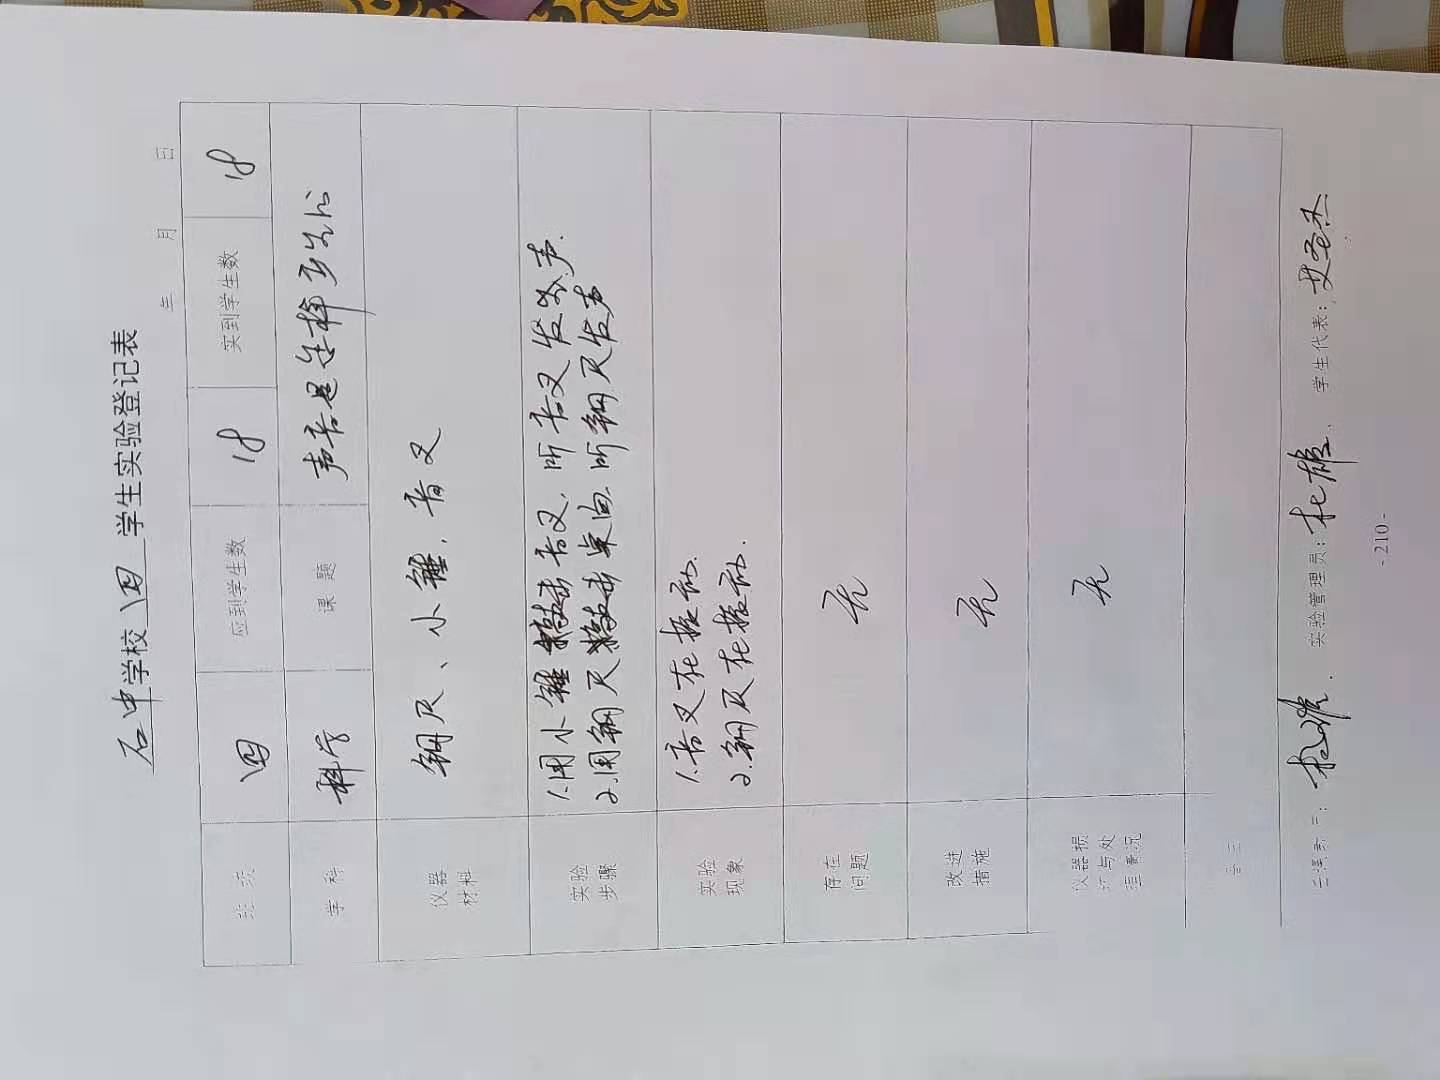 石中学校 四 学生实验登记表
年 月 日
班 次 四 应到学生数 18 实到学生数 18
学 科 科学 课 题 声音是怎样产生的
仪器材料 钢尺、小锤、音叉
实验步骤 1.用小锤敲击音叉,听音叉发声.
2.用钢尺敲击桌面,听钢尺发声
实验现象 1.音叉在振动.
2.钢尺在振动.
存在问题 无
改进措施 无
仪器损坏与处理情况 无
实验管理员: 杜雄 学生代表:
- 210 -